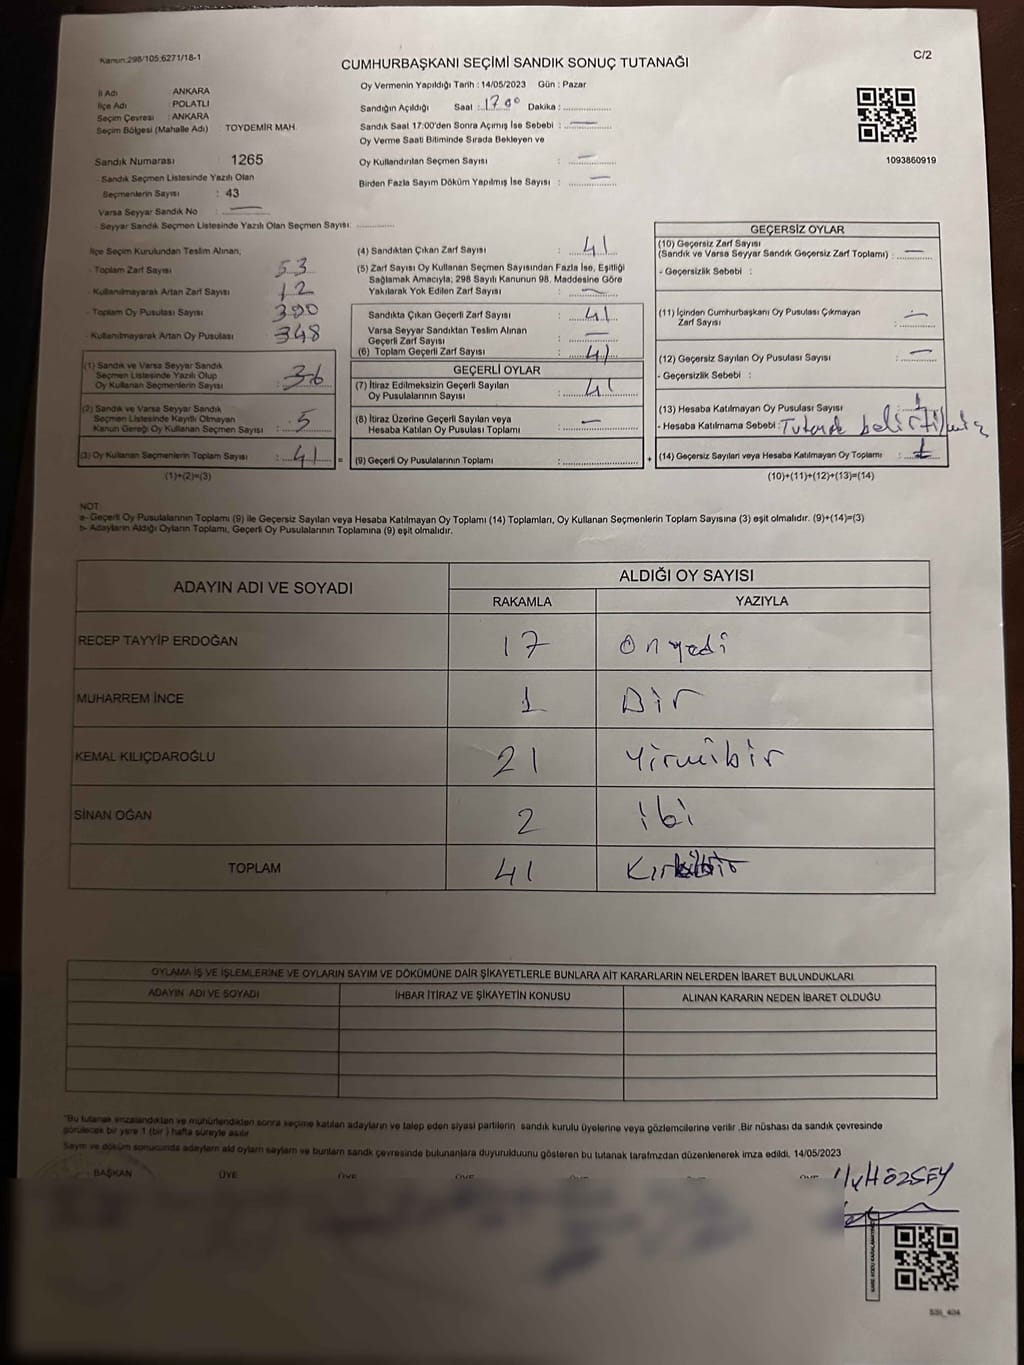 Kanun:298/105;6271/18-1
C/2
CUMHURBAŞKANI SEÇİMİ SANDIK SONUÇ TUTANAĞI
İl Adı ANKARA
İlçe Adı POLATLI
Seçim Çevresi : ANKARA
Seçim Bölgesi (Mahalle Adı) TOYDEMİR MAH.
Oy Vermenin Yapıldığı Tarih : 14/05/2023 Gün : Pazar
Sandığın Açıldığı Saat : 17 00 Dakika : ..............
Sandık Saat 17:00'den Sonra Açımış İse Sebebi : —
Oy Verme Saati Bitiminde Sırada Bekleyen ve
Oy Kullandırılan Seçmen Sayısı : —
Birden Fazla Sayım Döküm Yapılmış İse Sayısı : —
1093860919
Sandık Numarası 1265
Sandık Seçmen Listesinde Yazılı Olan
Seçmenlerin Sayısı : 43
Varsa Seyyar Sandık No : —
Seyyar Sandık Seçmen Listesinde Yazılı Olan Seçmen Sayısı: ..............
İlçe Seçim Kurulundan Teslim Alınan;
- Toplam Zarf Sayısı 53
- Kullanılmayarak Artan Zarf Sayısı 12
- Toplam Oy Pusulası Sayısı 390
- Kullanılmayarak Artan Oy Pusulası 348
(1) Sandık ve Varsa Seyyar Sandık
Seçmen Listesinde Yazılı Olup
Oy Kullanan Seçmenlerin Sayısı : 36
(2) Sandık ve Varsa Seyyar Sandık
Seçmen Listesinde Kayıtlı Olmayan
Kanun Gereği Oy Kullanan Seçmen Sayısı : 5
(3) Oy Kullanan Seçmenlerin Toplam Sayısı : 41
(1)+(2)=(3)
(4) Sandıktan Çıkan Zarf Sayısı : 41
(5) Zarf Sayısı Oy Kullanan Seçmen Sayısından Fazla İse, Eşitliği
Sağlamak Amacıyla; 298 Sayılı Kanunun 98. Maddesine Göre
Yakılarak Yok Edilen Zarf Sayısı : —
Sandıkta Çıkan Geçerli Zarf Sayısı : 41
Varsa Seyyar Sandıktan Teslim Alınan
Geçerli Zarf Sayısı : —
(6) Toplam Geçerli Zarf Sayısı : 41
GEÇERLİ OYLAR
(7) İtiraz Edilmeksizin Geçerli Sayılan
Oy Pusulalarının Sayısı : 41
(8) İtiraz Üzerine Geçerli Sayılan veya
Hesaba Katılan Oy Pusulası Toplamı : —
= (9) Geçerli Oy Pusulalarının Toplamı : ..............
GEÇERSİZ OYLAR
(10) Geçersiz Zarf Sayısı
(Sandık ve Varsa Seyyar Sandık Geçersiz Zarf Toplamı) : —
- Geçersizlik Sebebi :
(11) İçinden Cumhurbaşkanı Oy Pusulası Çıkmayan
Zarf Sayısı : —
(12) Geçersiz Sayılan Oy Pusulası Sayısı : —
- Geçersizlik Sebebi :
(13) Hesaba Katılmayan Oy Pusulası Sayısı : 1
- Hesaba Katılmama Sebebi :
+ (14) Geçersiz Sayılan veya Hesaba Katılmayan Oy Toplamı :
(10)+(11)+(12)+(13)=(14)
NOT:
a- Geçerli Oy Pusulalarının Toplamı (9) ile Geçersiz Sayılan veya Hesaba Katılmayan Oy Toplamı (14) Toplamları, Oy Kullanan Seçmenlerin Toplam Sayısına (3) eşit olmalıdır. (9)+(14)=(3)
b- Adayların Aldığı Oyların Toplamı, Geçerli Oy Pusulalarının Toplamına (9) eşit olmalıdır.
ADAYIN ADI VE SOYADI ALDIĞI OY SAYISI
RAKAMLA YAZIYLA
RECEP TAYYİP ERDOĞAN 17 onyedi
MUHARREM İNCE 1 Bir
KEMAL KILIÇDAROĞLU 21 Yirmibir
SİNAN OĞAN 2 iki
TOPLAM 41
OYLAMA İŞ VE İŞLEMLERİNE VE OYLARIN SAYIM VE DÖKÜMÜNE DAİR ŞİKAYETLERLE BUNLARA AİT KARARLARIN NELERDEN İBARET BULUNDUKLARI
ADAYIN ADI VE SOYADI İHBAR İTİRAZ VE ŞİKAYETİN KONUSU ALINAN KARARIN NEDEN İBARET OLDUĞU
"Bu tutanak imzalandıktan ve mühürlendikten sonra seçime katılan adayların ve talep eden siyasi partilerin sandık kurulu üyelerine veya gözlemcilerine verilir .Bir nüshası da sandık çevresinde
görülecek bir yere 1 (bir ) hafta süreyle asılır
Sayım ve döküm sonucunda adayların ald oyların sayların ve bunların sandk çevresinde bulunanlara duyurulduunu gösteren bu tutanak tarafmzdan düzenlenerek imza edildi. 14/05/2023
BAŞKAN ÜYE ÜYE ÜYE